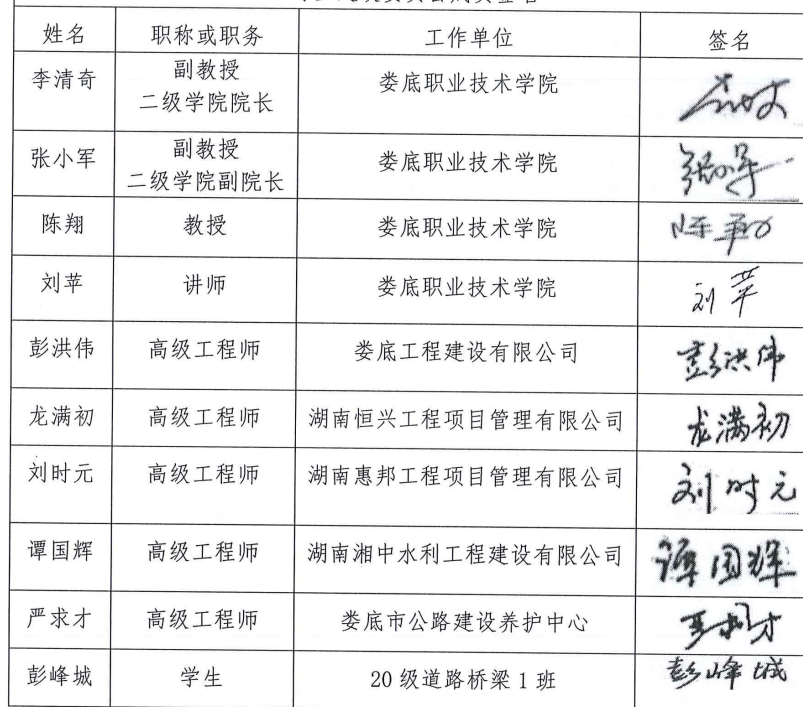 姓名 职称或职务 工作单位 签名
李清奇 副教授 娄底职业技术学院
二级学院院长
张小军 副教授 娄底职业技术学院 张小军
二级学院副院长
陈翔 教授 娄底职业技术学院 陈翔
刘苹 讲师 娄底职业技术学院 刘苹
彭洪伟 高级工程师 娄底工程建设有限公司 彭洪伟
龙满初 高级工程师 湖南恒兴工程项目管理有限公司 龙满初
刘时元 高级工程师 湖南惠邦工程项目管理有限公司 刘时元
谭国辉 高级工程师 湖南湘中水利工程建设有限公司 谭国辉
严求才 高级工程师 娄底市公路建设养护中心 严求才
彭峰城 学生 20级道路桥梁1班 彭峰城